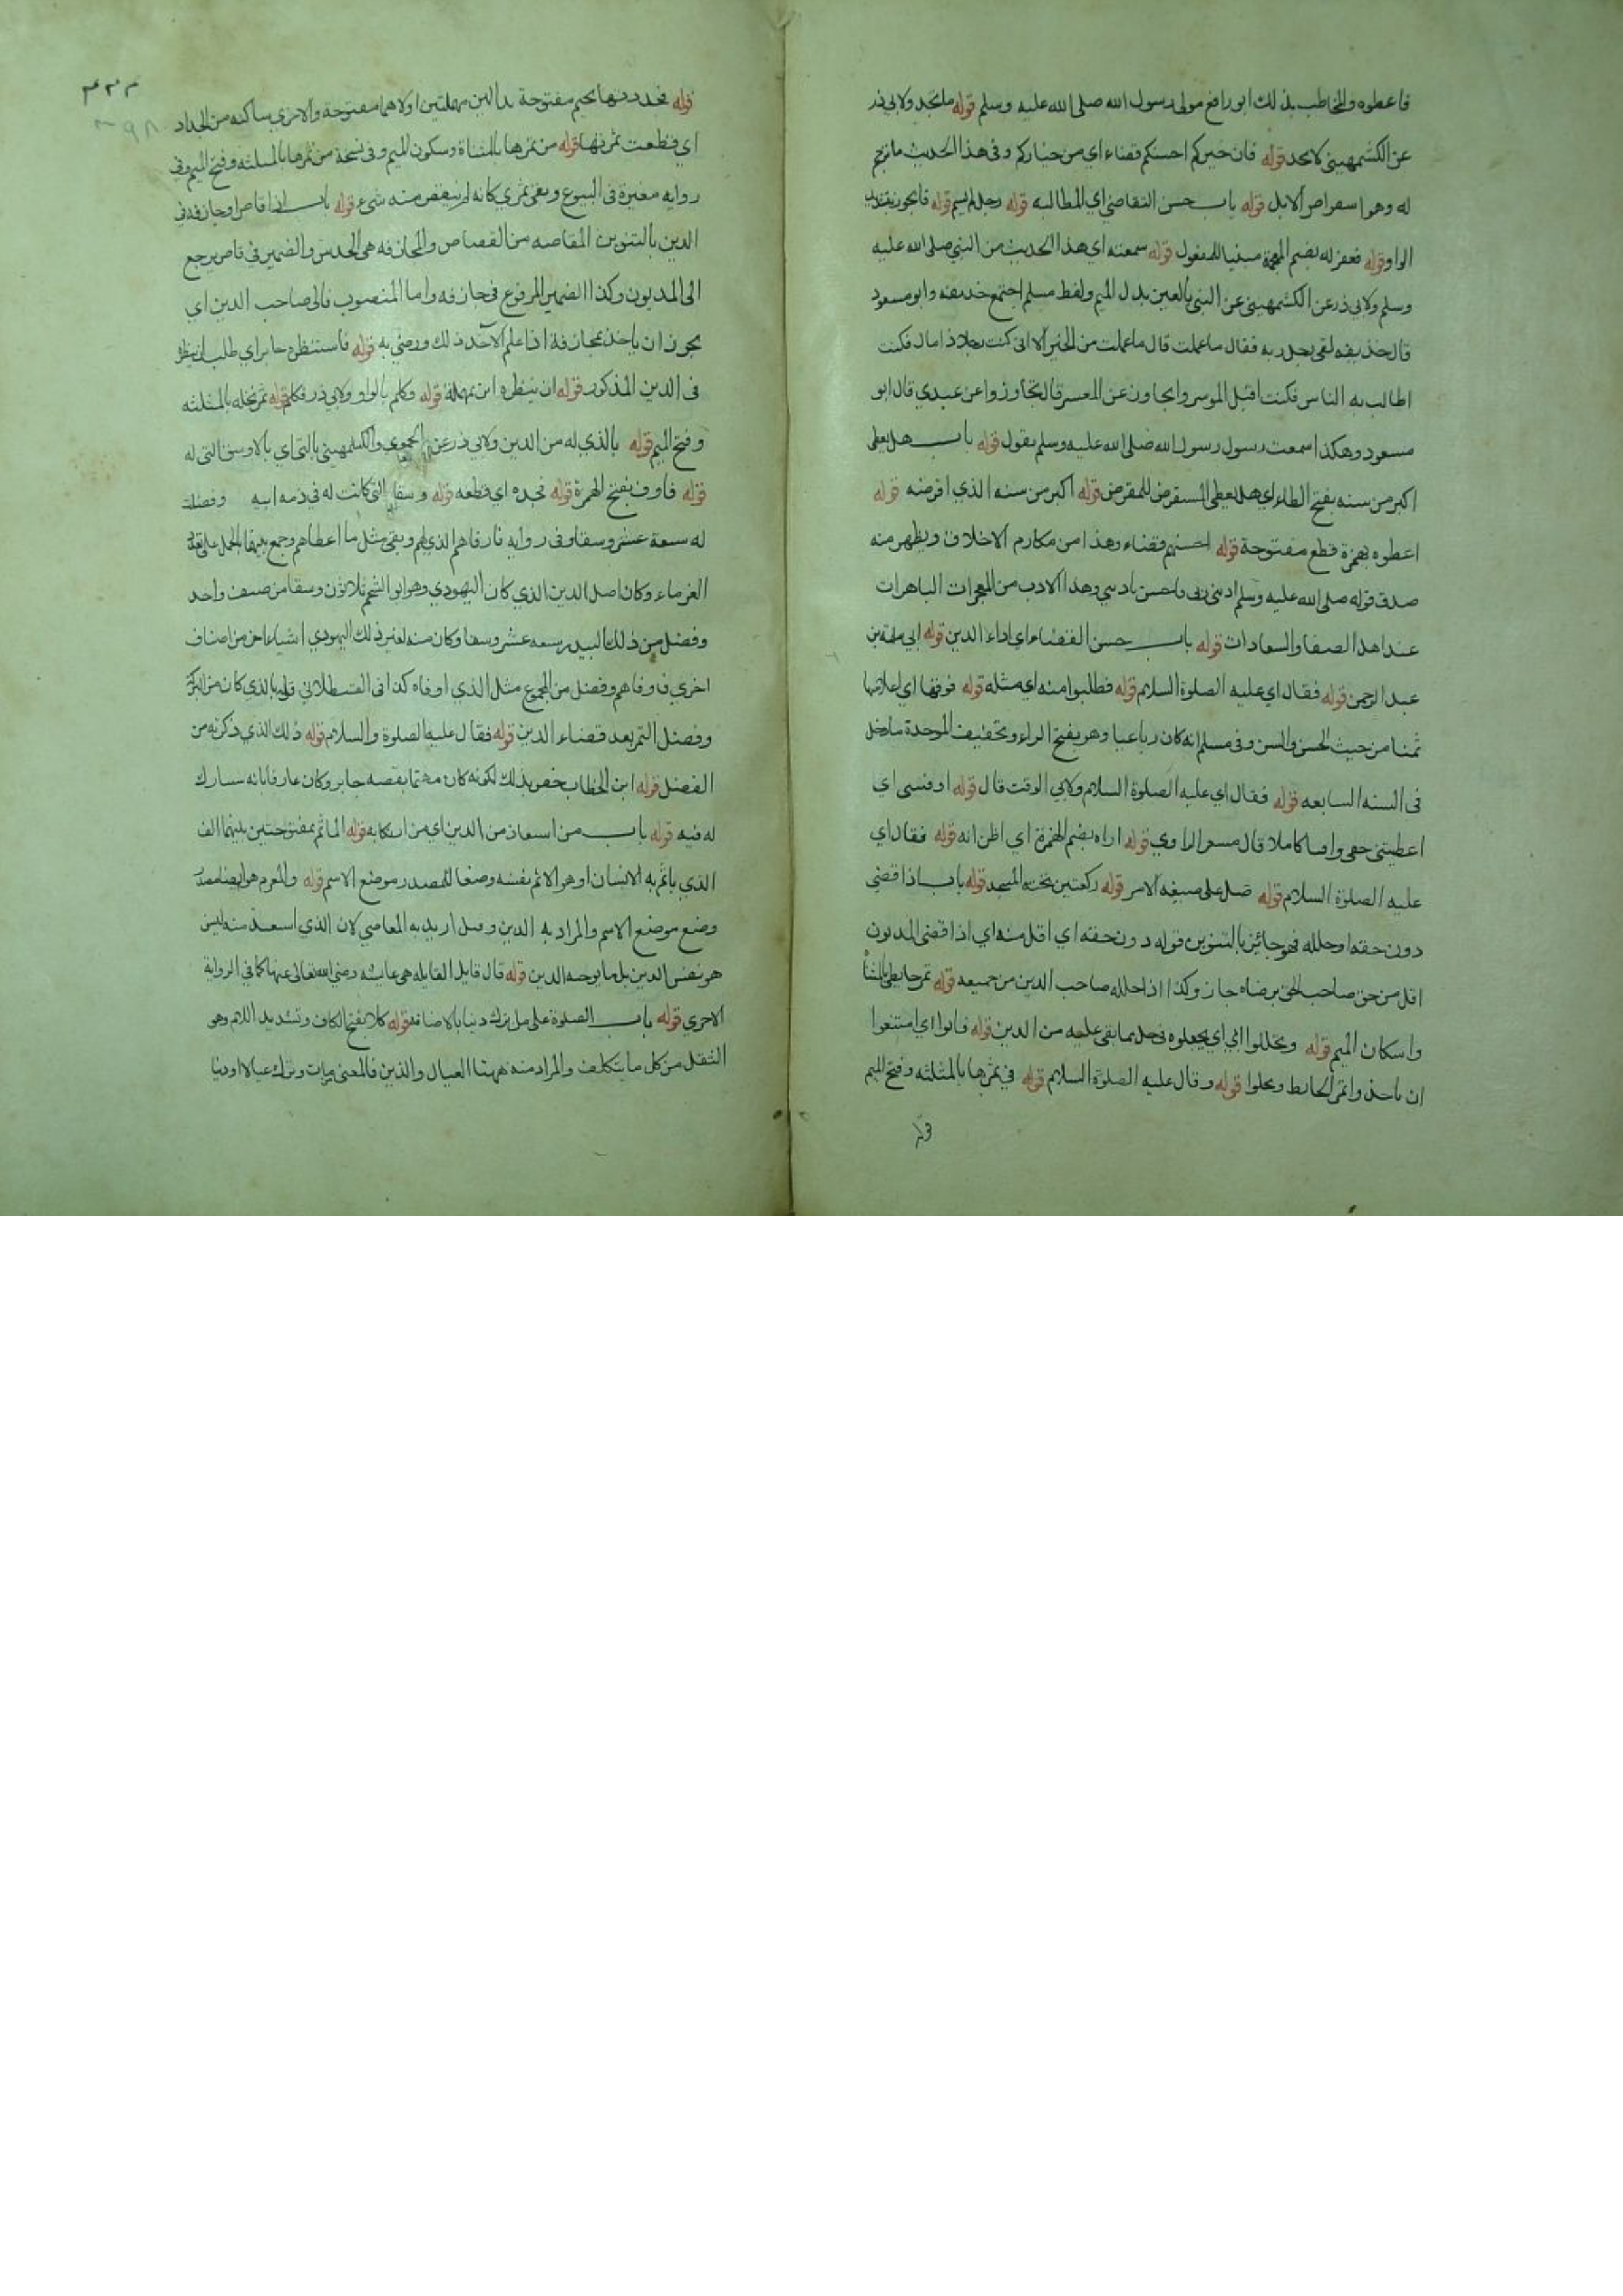 فاعطوه والمخاطب بذلك ابو رافع مولى رسول الله صلى الله عليه وسلم قوله ما نجد ولابي ذر
عن الكشميهني لا نجد قوله فان خيركم احسنكم قضاء اي من خياركم وفي هذا الحديث ما ترجم
له وهو استقراض الابل قوله باب حسن التقاضي اي المطالبة قوله رجل لم يسم قوله فاتجوز بتشديد
الواو قوله فغفر له بضم المعجمة مبنيا للمفعول قوله سمعته اي هذا الحديث من النبي صلى الله عليه
وسلم ولابي ذر عن الكشميهني عن النبي بالعين بدل الميم ولفظ مسلم اجتمع حذيفه وابو مسعود
قال حذيفه لقي رجل ربه فقال ما عملت قال ما عملت من الخير الا اني كنت رجلا ذا مال فكنت
اطالب به الناس فكنت اقبل الموسر واتجاوز عن المعسر قال تجاوزوا عن عبدي قال ابو
مسعود وهكذا سمعت رسول رسول الله صلى الله عليه وسلم يقول قوله باب هل يعطى
اكبر من سنه بفتح الطاء اي هل يعطى المستقرض للمقرض قوله اكبر من سنه الذي اقرضه قوله
اعطوه بهمزة قطع مفتوحة قوله احسنهم قضاء وهذا من مكارم الاخلاق ويظهر منه
صدق قوله صلى الله عليه وسلم ادبني ربي فاحسن تاديبي وهذا الادب من المعجزات الباهرات
عند اهل الصفا والسعادات قوله باب حسن القضاء اي اداء الدين قوله ابي سلمة بن
عبد الرحمن قوله فقال اي عليه الصلوة السلام قوله فطلبوا منه اي مثله قوله فوقها اي اعلا منها
ثمنا من حيث الحسن والسن وفي مسلم انه كان رباعيا وهو بفتح الراء وتخفيف الموحدة ما دخل
في السنه السابعه قوله فقال اي عليه الصلوة السلام ولابي الوقت قال قوله اوفيتني اي
اعطيتني حقي وافيا كاملا قال مسعر الراوي قوله اراه بضم الهمزة اي اظن انه قوله فقال اي
عليه الصلوة السلام قوله صل على صيغه الامر قوله ركعتين تحية المسجد قوله باب اذا قضى
دون حقه او حلله فهو جائز بالتنوين قوله دون حقه اي اقل منه اي اذا قضى المديون
اقل من حق صاحب الحق برضاه جاز وكذا اذا حلله صاحب الدين من جميعه قوله تمر حايطي بالمثناة
واسكان الميم قوله ويحللوا ابي اي يجعلوه في حل مما بقي عليه من الدين قوله فابوا اي امتنعوا
ان ياخذوا تمر الحايط ويحلوا قوله وقال عليه الصلوة السلام قوله في ثمرها بالمثلثه وفتح الميم
قوله
٣٩٨
قوله فجددتها بجيم مفتوحة بدالين مهملتين اولاهما مفتوحة والاخرى ساكنه من الجداد
اي قطعت ثمرتها قوله من تمرها بالمثناة وسكون الميم وفي نسخة من ثمرها بالمثلثه وفتح الميم وفي
روايه مغيرة في البيوع وبقي تمري كانه لم ينقص منه شيء قوله باب اذا قاص او جازفه في
الدين بالتنوين المقاصه من القصاص والمجازفه هي الحدس والضمير في قاص يرجع
الى المديون وكذا الضمير المرفوع في جازفه واما المنصوب فالى صاحب الدين اي
يجوز ان ياخذ مجازفة اذا علم الآخذ ذلك ورضي به قوله فاستنظره جابر اي طلب ان ينظره
في الدين المذكور قوله ان ينظره اي يمهله قوله وكلم بالواو ولابي ذر فكلم قوله ثمر نخله بالمثلثه
وفتح الميم قوله بالذي له من الدين ولابي ذر عن الحموي والكشميهني بالتي اي بالاوسق التي له
قوله فاوف بفتح الهمزة قوله فجده اي قطعه قوله وسقا التي كانت له في ذمه ابيه وفضلت
له سبعة عشر وسقا وفي روايه فاوفاهم الذي لهم وبقي مثل ما اعطاهم وجمع بينهما بالحمل على تعدد
الغرماء وكان اصل الدين الذي كان اليهودي وهو ابو الشحم ثلاثون وسقا من صنف واحد
وفضل من ذلك البيدر سبعه عشر وسقا وكان منه لغير ذلك اليهودي اشياء اخر من اصناف
اخري فاوفاهم وفضل من المجموع مثل الذي اوفاه كذا في القسطلاني قوله بالذي كان من البركة
وفضل التمر بعد قضاء الدين قوله فقال عليه الصلوة والسلام قوله ذلك الذي ذكرته من
الفضل قوله ابن الخطاب خصه بذلك لكونه كان مهتما بقصه جابر وكان عارفا بانه سيبارك
له فيه قوله باب من استعاذ من الدين اي من ارتكابه قوله الماثم بمفتوحتين بينهما الف
الذي ياثم به الانسان او هو الاثم نفسه وضعا للمصدر موضع الاسم قوله والمغرم هو ايضا مصدر
وضع موضع الاسم والمراد به الدين وقيل اريد به المعاصي لان الذي استعيذ منه ليس
هو نفس الدين بل ما يوجبه الدين قوله قال قايل القايله هي عايشه رضي الله تعالى عنها كما في الرواية
الاخري قوله باب الصلوة على من ترك دينا بالاضافة قوله كلا بفتح الكاف وتشديد اللام وهو
الثقل من كل ما يتكلف والمراد منه ههنا العيال والدين فالمعنى مات وترك عيالا او دينا